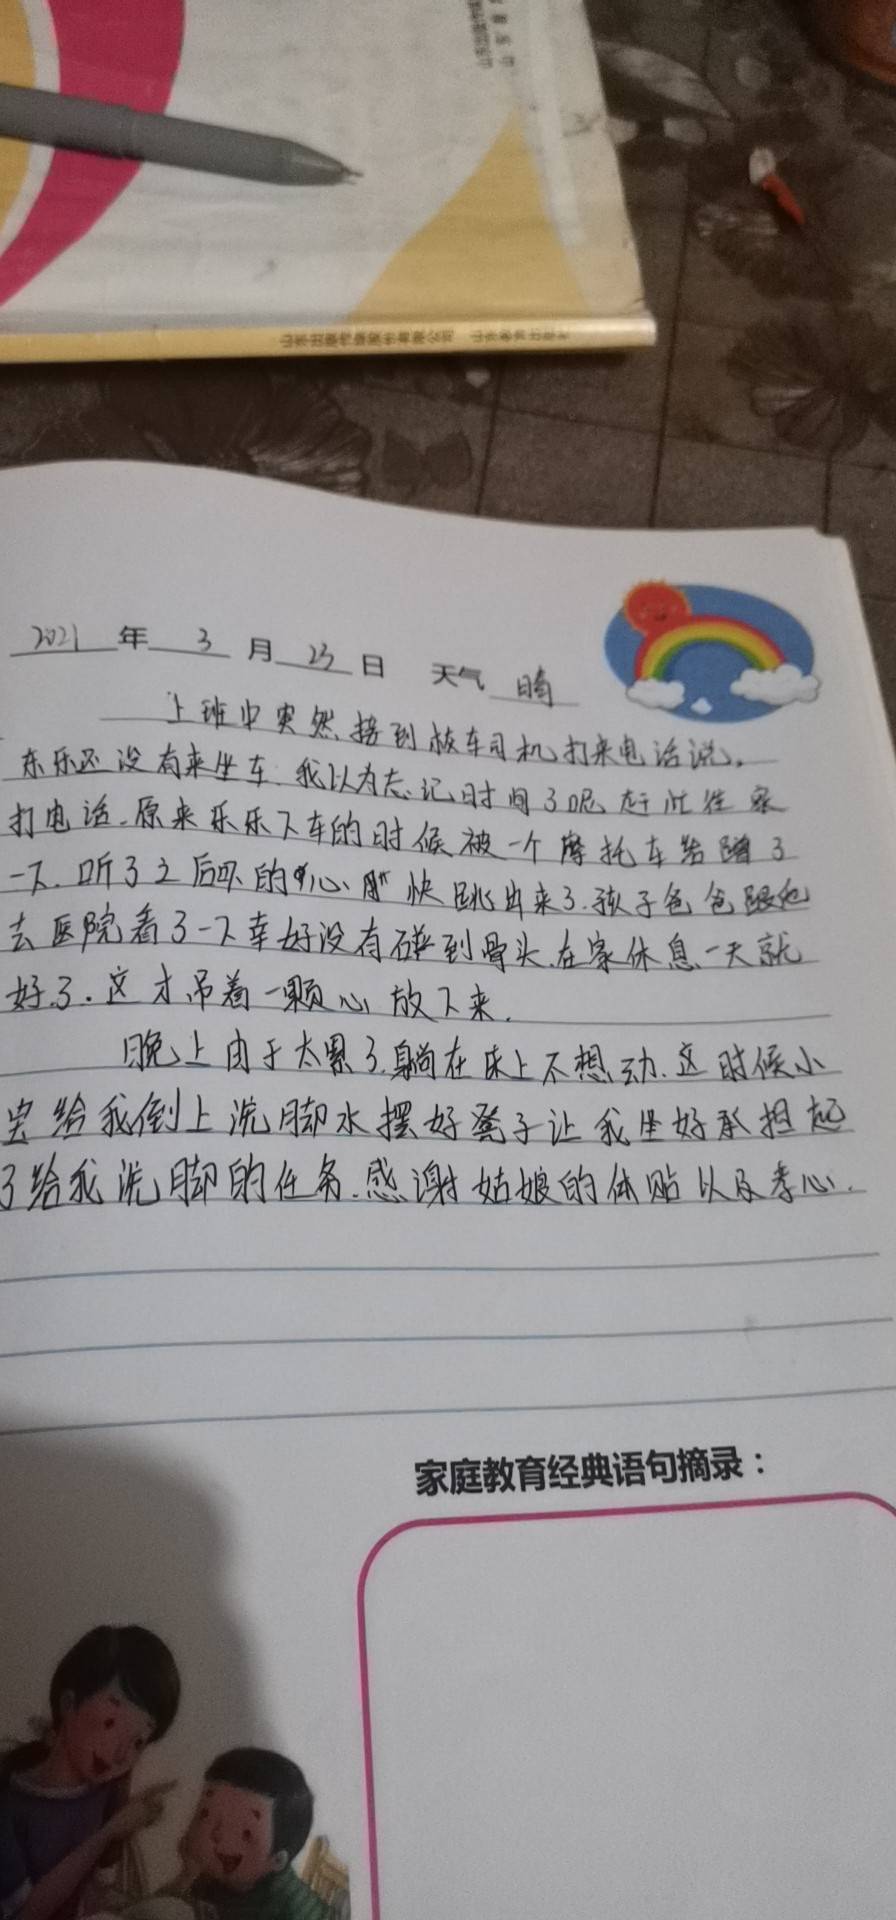 山东出版传媒股份有限公司 山东教育出版社
2021 年 3 月 23 日 天气 晴
上班中突然接到校车司机打来电话说,
东乐还没有来坐车.我以为忘记时间了呢赶忙往家
打电话.原来乐乐下车的时候被一个摩托车给蹭了
一下.听了之后吓的心快跳出来了.孩子爸爸跟他
去医院看了一下幸好没有碰到骨头.在家休息一天就
好了.这才吊着一颗心放下来.
晚上由于太累了.躺在床上不想动.这时候小
宝给我倒上洗脚水摆好凳子让我坐好承担起
了给我洗脚的任务.感谢姑娘的体贴以及孝心.
家庭教育经典语句摘录：